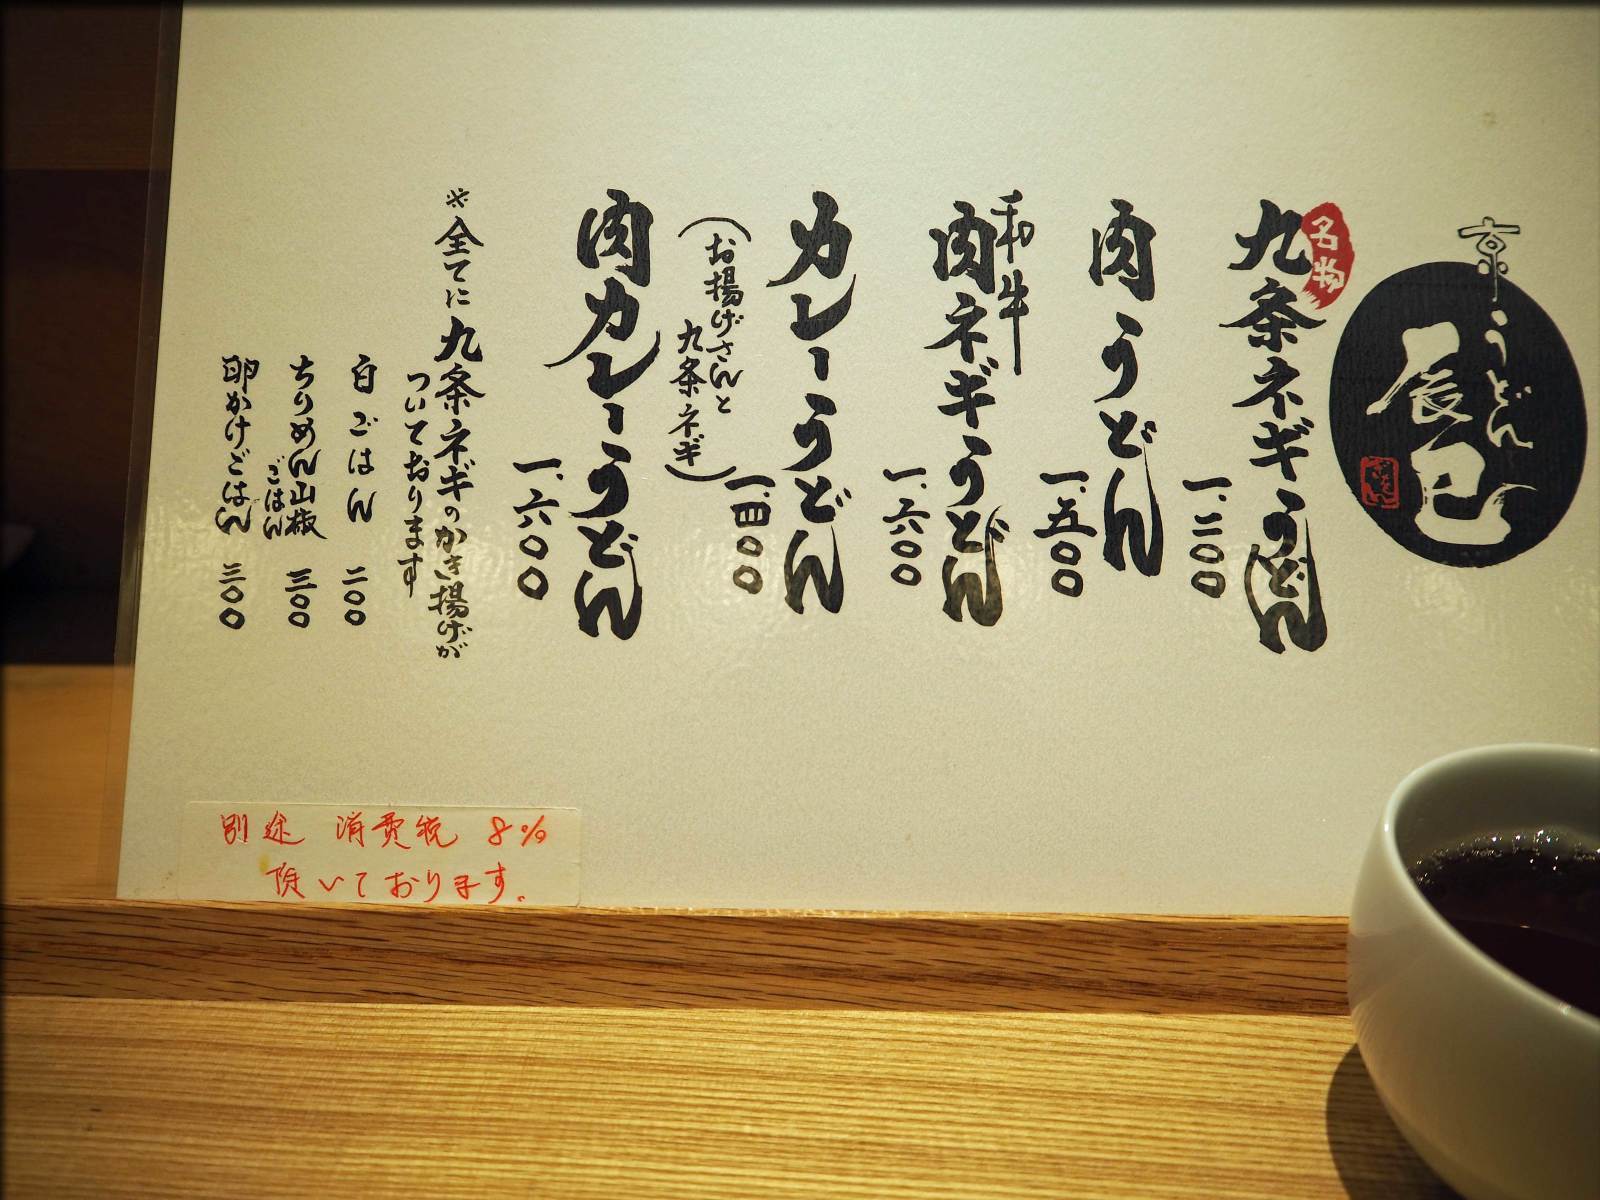 京うどん
辰巳
名物
九条ネギうどん
一、二〇〇
肉うどん
一、五〇〇
和牛
肉ネギうどん
一、六〇〇
カレーうどん
一、四〇〇
(お揚げさんと
九条ネギ)
肉カレーうどん
一、六〇〇
※全てに九条ネギのかき揚げが
ついております
白ごはん 二〇〇
ちりめん山椒
ごはん 三〇〇
卵かけごはん 三〇〇
別途 消費税 8%
頂いております。